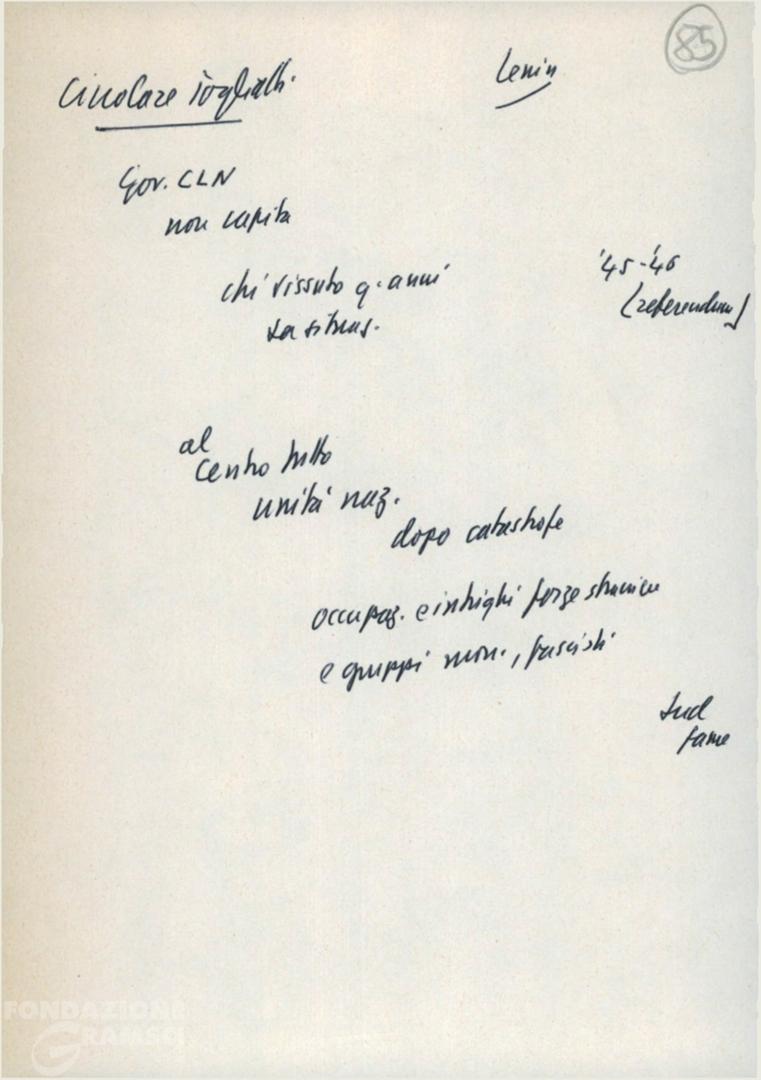 85
Circolare Togliatti.
Lenin
Gov. CLN
non capita
chi vissuto q. anni
'45-'46
(referendum)
sa situaz.
al
centro tutto
unità naz.
dopo catastrofe
occupaz. e intrighi forze straniere
e gruppi mon., fascisti
sud
fame
FONDAZIONE
GRAMSCI